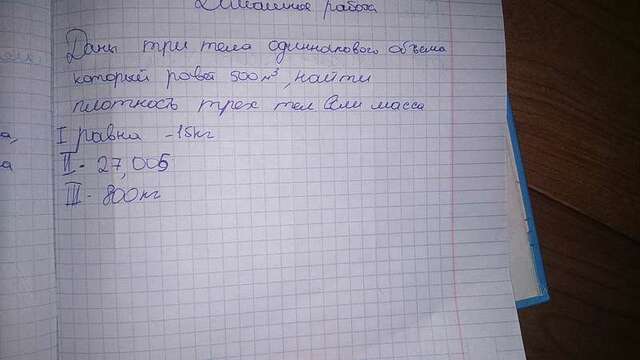 Домашнее работа
Даны три тела одинакового объема
который равен 500 м³, найти
плотность трех тел Если масса
I равна - 15кг
II - 27,005
III - 800кг